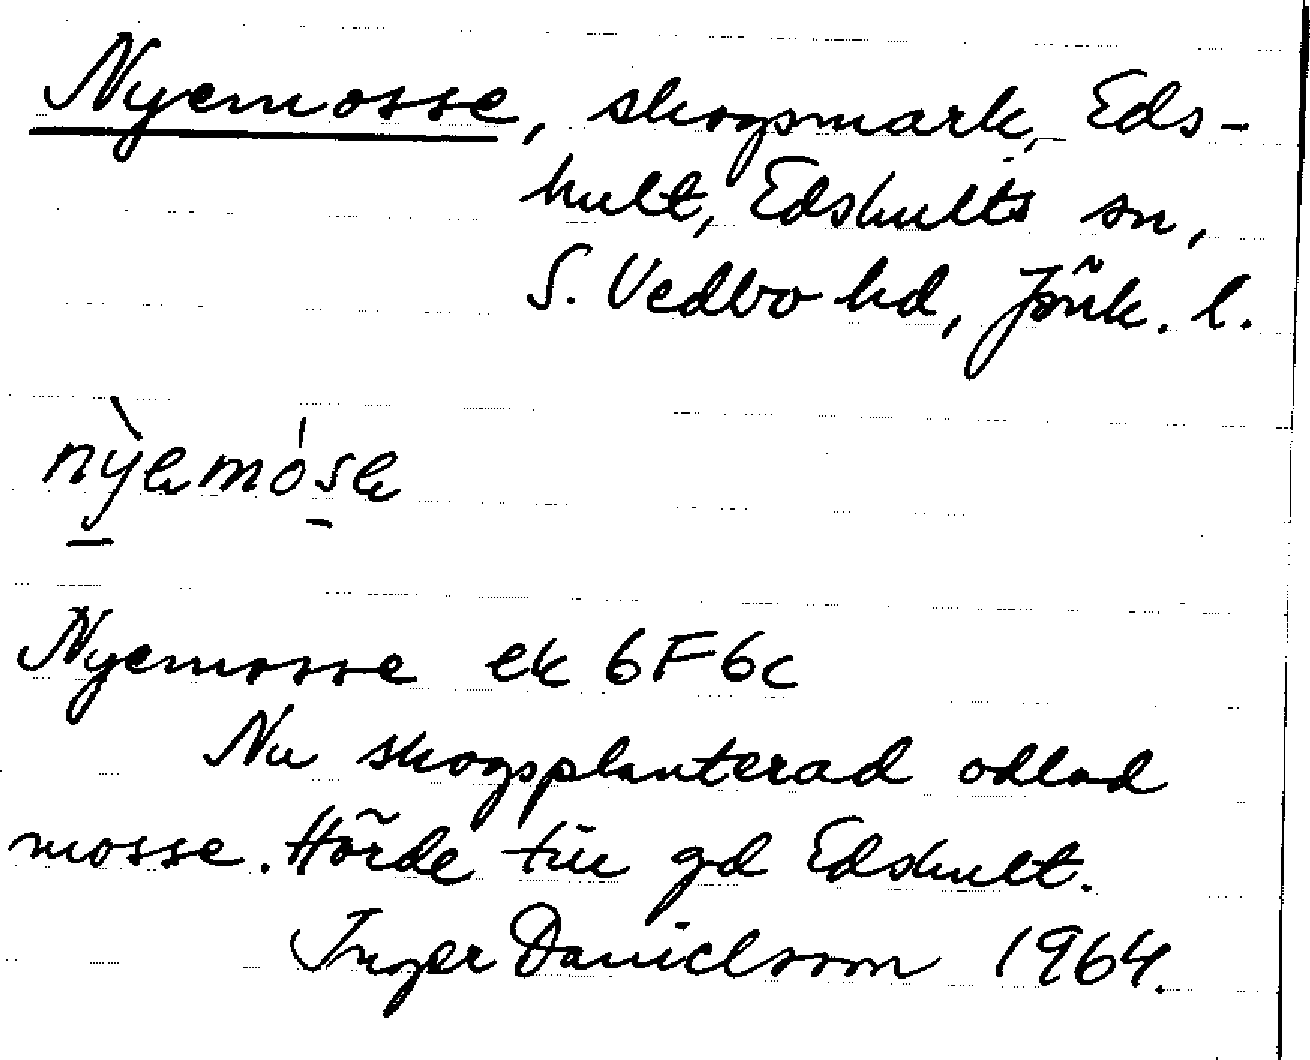 Nyemosse, skogsmark, Eds-
hult, Edshults sn,
S. Vedbo hd, Jönk. l.
nỳemóse
Nyemosse ek 6F6c
Nu skogsplanterad odlad
mosse. Hörde till gd Edshult.
Inger Danielsson 1964.